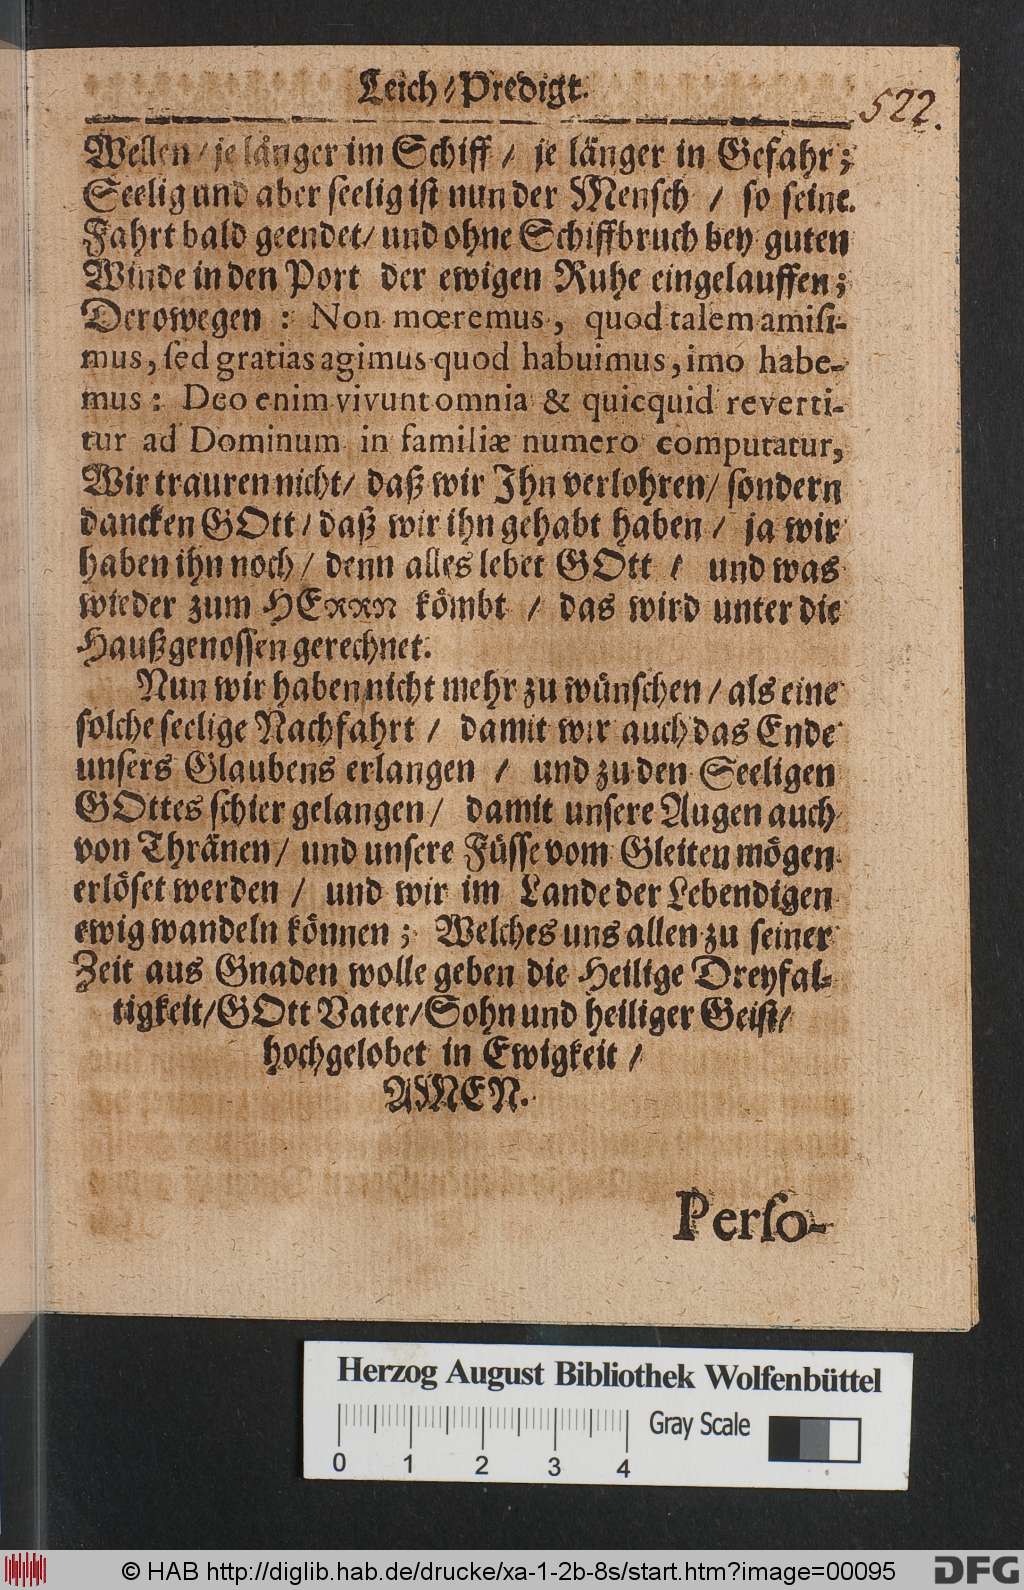 Leich/Predigt.
522.
Wellen/ je länger im Schiff/ je länger in Gefahr;
Seelig und aber seelig ist nun der Mensch / so seine
Fahrt bald geendet/ und ohne Schiffbruch bey guten
Winde in den Port der ewigen Ruhe eingelauffen;
Derowegen : Non mœremus, quod talem amiſi-
mus, ſed gratias agimus quod habuimus, imo habe-
mus: Deo enim vivunt omnia & quicquid reverti-
tur ad Dominum in familiæ numero computatur,
Wir trauren nicht/ daß wir Ihn verlohren/ sondern
dancken GOtt/ daß wir ihn gehabt haben/ ja wir
haben ihn noch/ denn alles lebet GOtt / und was
wieder zum HErrn kömbt / das wird unter die
Haußgenossen gerechnet.
Nun wir haben nicht mehr zu wünschen/ als eine
solche seelige Nachfahrt / damit wir auch das Ende
unsers Glaubens erlangen / und zu den Seeligen
GOttes schier gelangen/ damit unsere Augen auch
von Thränen/ und unsere Füsse vom Gleiten mögen
erlöset werden / und wir im Lande der Lebendigen
ewig wandeln können; Welches uns allen zu seiner
Zeit aus Gnaden wolle geben die Heilige Dreyfal-
tigkeit/GOtt Vater/Sohn und heiliger Geist/
hochgelobet in Ewigkeit /
AMEN.
Perſo-
Herzog August Bibliothek Wolfenbüttel
Gray Scale
0 1 2 3 4
© HAB http://diglib.hab.de/drucke/xa-1-2b-8s/start.htm?image=00095
DFG